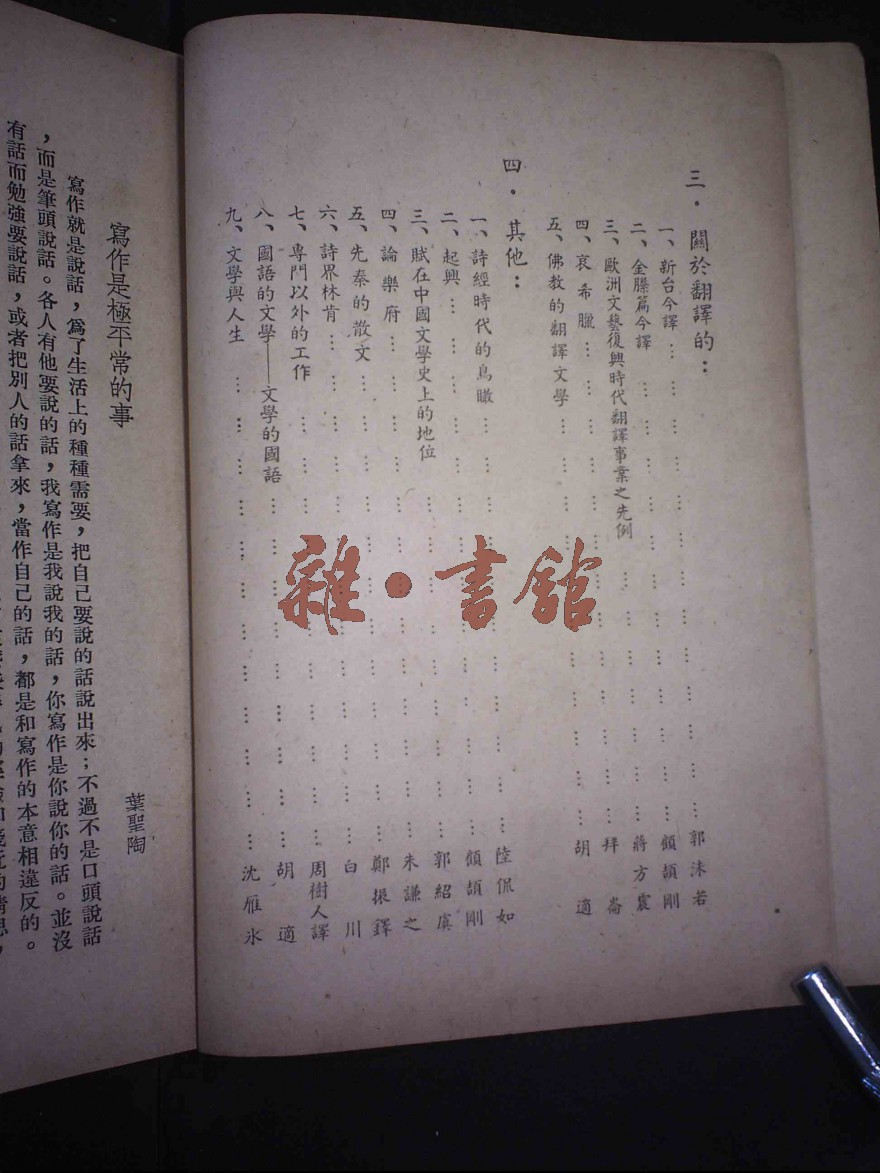 三．關於翻譯的：
一、新台今譯……………………………………郭沫若
二、金縢篇今譯……………………………………顧頡剛
三、歐洲文藝復興時代翻譯事業之先例……………………蔣方震
四、哀希臘……………………………………拜崙
五、佛教的翻譯文學……………………………………胡適
四．其他：
一、詩經時代的鳥瞰……………………………………陸侃如
二、起興……………………………………顧頡剛
三、賦在中國文學史上的地位……………………………郭紹虞
四、論樂府……………………………………朱謙之
五、先秦的散文……………………………………鄭振鐸
六、詩界林肯……………………………………白川
七、專門以外的工作……………………………………周樹人譯
八、國語的文學——文學的國語……………………………胡適
九、文學與人生……………………………………沈雁冰
雜·書館
寫作是極平常的事
葉聖陶
寫作就是說話，為了生活上的種種需要，把自己要說的話說出來；不過不是口頭說話
，而是筆頭說話。各人有他要說的話，我寫作是我說我的話，你寫作是你說你的話。並沒
有話而勉強要說話，或者把別人的話拿來，當作自己的話，都是和寫作的本意相違反的。